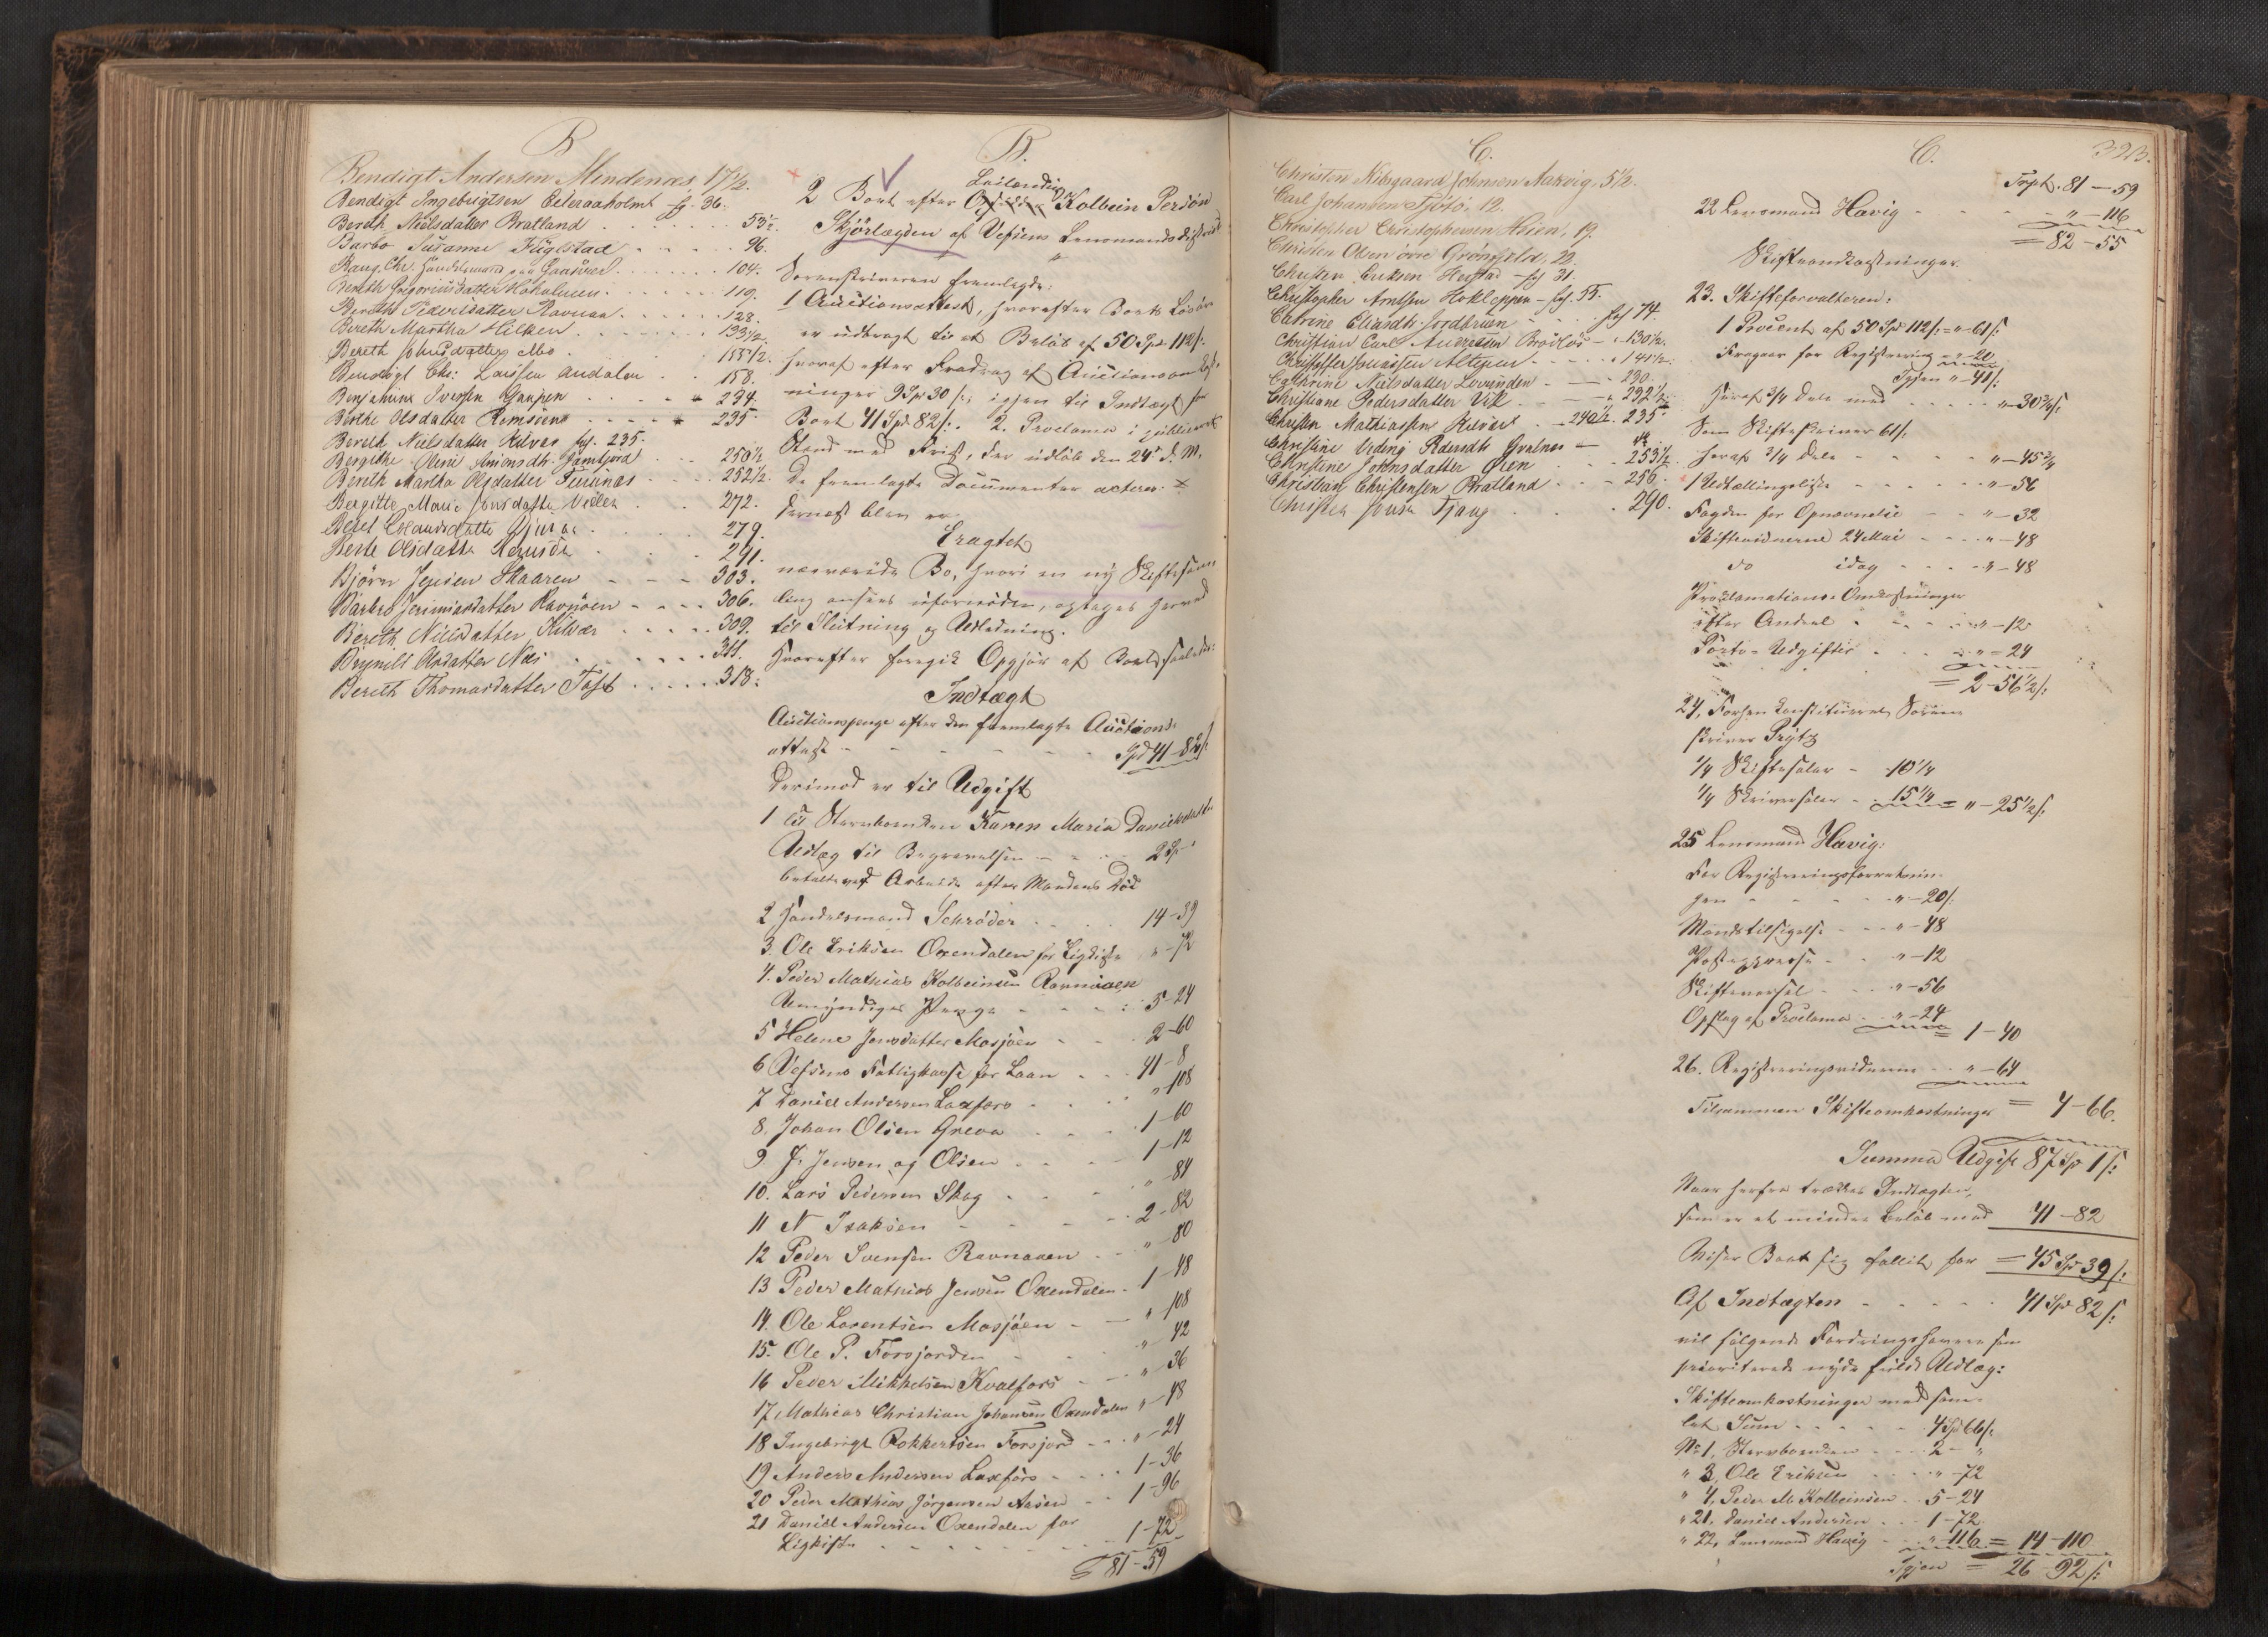 B
Bendigt Andersen Mindenæs, 17½.
Bendigt Ingebrigtsen Eileraaholmt fol. 36.
Bereth Nielsdatter Bratland 53½.
Barbo Susanne Fuglstad 96.
Baug, Chr. Handelsmand paa Gaasvær 104.
Bereth Gregoriusdatter Hokolmen 119.
Bereth Pederdatter Ravnaa 128.
Bereth Martha Hilken 133½.
Bereth Johnsdatter Mo 155½.
Bendigt Chr: Larssen Andalen 158.
Benjamin Iversen Grupen 234.
Berthe Olsdatter Remsøen 235
Bereth Nielsdatter Kilvær fol. 235.
Bergithe Oline Antonsdtr. Jamtfjord 250½
Bereth Martha Olsdatter Furunæs 252½.
Bergitte Marie Jonsdatter Vedlen 272.
279.
Berte Olsdatter 291.
Bjørn Jensen Skaaren 303.
Barbro Jerimiasdatter Ravnøen 306.
Bereth Nielsdatter Kilvær 309.
Brynild Olsdatter Næs 311.
Bereth Thomasdatter Toft 318.
B.
2 Boet efter Leilænding Kolbein Persøn
Skjørlægden af Vefsens Lensmandsdistrict
Sorenskriveren fremlagde:
1 Auctionsattest, hvorefter Boets Løsøre
er udbragt til et Beløb af 50 Spd 112 s:
hvoraf efter Fradrag af Auctionsomkost-
ninger 9 Spd 30 s:, igjen til Indtægt for
Boet 41 Spd 82 s:. 2. Proclama i publiceret
Stand med Frist, der udløb den 24de d. M.
De fremlagte Documenter acteres.
Dernæst blev
Eragtet
nærværende Bo, hvori en ny Skiftesam-
ling ansees ufornøden, optages herved
til Slutning og Udlodning.
Hvorefter foregik Opgjør af Boet saaledes:
Indtægt
Auctionspenge efter den fremlagte Auctions-
attest Spd 41-82 s:
Derimod er til Udgift
1 til Stervboenken Karen Maria Danielsdatter
Udlæg til Begravelsen 2 Sp "
betalt ved Arbeide efter Mandens Død
2 Handelsmand Schrøder 14-39
3. Ole Eriksen Oxendalen for Ligkiste "-72
4. Peder Mathias Kolbeinsen Ravnaaen
Umyndiges Penge 5-24
5 Helene Jensdatter Mosjøen 2-60
6 Vefsens Fattigkasse for Laan 41-8
7 Daniel Andersen Laxfors "-108
8. Johan Olsen Grevoa 1-60
9 J. Jensen og Olsen 1-12
10. Lars Pedersen Skog "-84
11 N Isaksen 2-82
12 Peder Svensen Ravnaaen "-80
13 Peder Mathias Jensen Oxendalen 1-48
14. Ole Lorentsen Mosjøen "-108
15. Ole P. Forsjorden "-42
16 Peder Mikkelsen Kvalfors "-36
17 Mathias Christian Johansen Oxendalen "-48
18 Ingebrigt Rokkertsen Forsjord "-24
19 Anders Andersen Laxfors 1-36
20 Peder Mathias Jørgensen Aasen 1-96
21 Daniel Andersen Oxendalen for
Ligkiste 1-72
= 81-59
C.
Christen Nilsgaard Johnsen Aakvig. 5½.
Carl Johansen Tjøtø. 12.
Christopher Christophersen Hien, 19.
Christen Olsen övre Grønsfjeld, 22.
Christen Eriksen Herstad fol 31.
Christopher Arntsen Hokleppen - fol. 55.
Catrine Eliasdtr. Jordbruen fol 74.
Christian Carl Andreasen Brødløs - 130½.
Christoffer Jonassen Alteren 141½.
Cathrine Nielsdatter Lovunden 230.
Christiane Pedersdatter Vik 232½.
Christen Mathiassen Kilvær 240½. 235
Christine Veding Pedersdtr Hvalnes
Christine Johnsdatter Øien 253½
Christian Christensen Bratland 256.
Christen Jonsen Tjong 290.
C.
323.
Trspt. 81-59
22 Lensmand Havig "-116
= 82-55
Skifteomkostninger.
23. Skifteforvalteren:
1 Procent af 50 Spd 112 s: = "-61 s:
Fragaar for Registrering "-20
Igjen "-41 s:
Heraf 3/4 Dele med "-30¾ s:
Som Skifteskriver 61 s:
heraf 3/4 Dele "-45¾
1 Udlodningsliste "-56
Fogden for Opnævnelse "-32
Skiftevidnerne 24 Mai "-48
do idag "-48
Proclamations-Omkostninger
efter Andeel "-12
Porto-Udgifter "-24
= 2-56½ s:
24, Forhen constitueret Soren-
skriver Prytz
¼ Skiftesalær - 10¼
¼ Skriversalær - 15¼ = "-25½ s:
25 Lensmand Havig:
For Registreringsforretnin-
gen "-20 s:
Mandstilsigelse "-48
Postexpresse "-12
Skiftevarsel "-56
Opslag af Proclama "-24
= 1-40
26. Registreringsvidnerne "-64
Tilsammen Skifteomkostninger = 4-66.
Summa Udgift 87 Sp 1 s:
Naar herfra trækkes Indtægten,
som er et mindre Beløb med 41-82
Viser Boet sig fallit for = 45 Sp 39 s:
Af Indtægten 41 Sp 82 s:
vil følgende Fordringshavere som
prioriterede nyde fuldt Udlæg:
Skifteomkostninger med sam-
let Sum 4 Sp 66 s:
No 1, Stervboenken 2-"
" 3, Ole Eriksen "-72
" 4, Peder M. Kolbeinsen 5-24
" 21, Daniel Andersen 1-72
" 22, Lensmand Havig "-116 = 14-110
Igjen = 26-92 s: